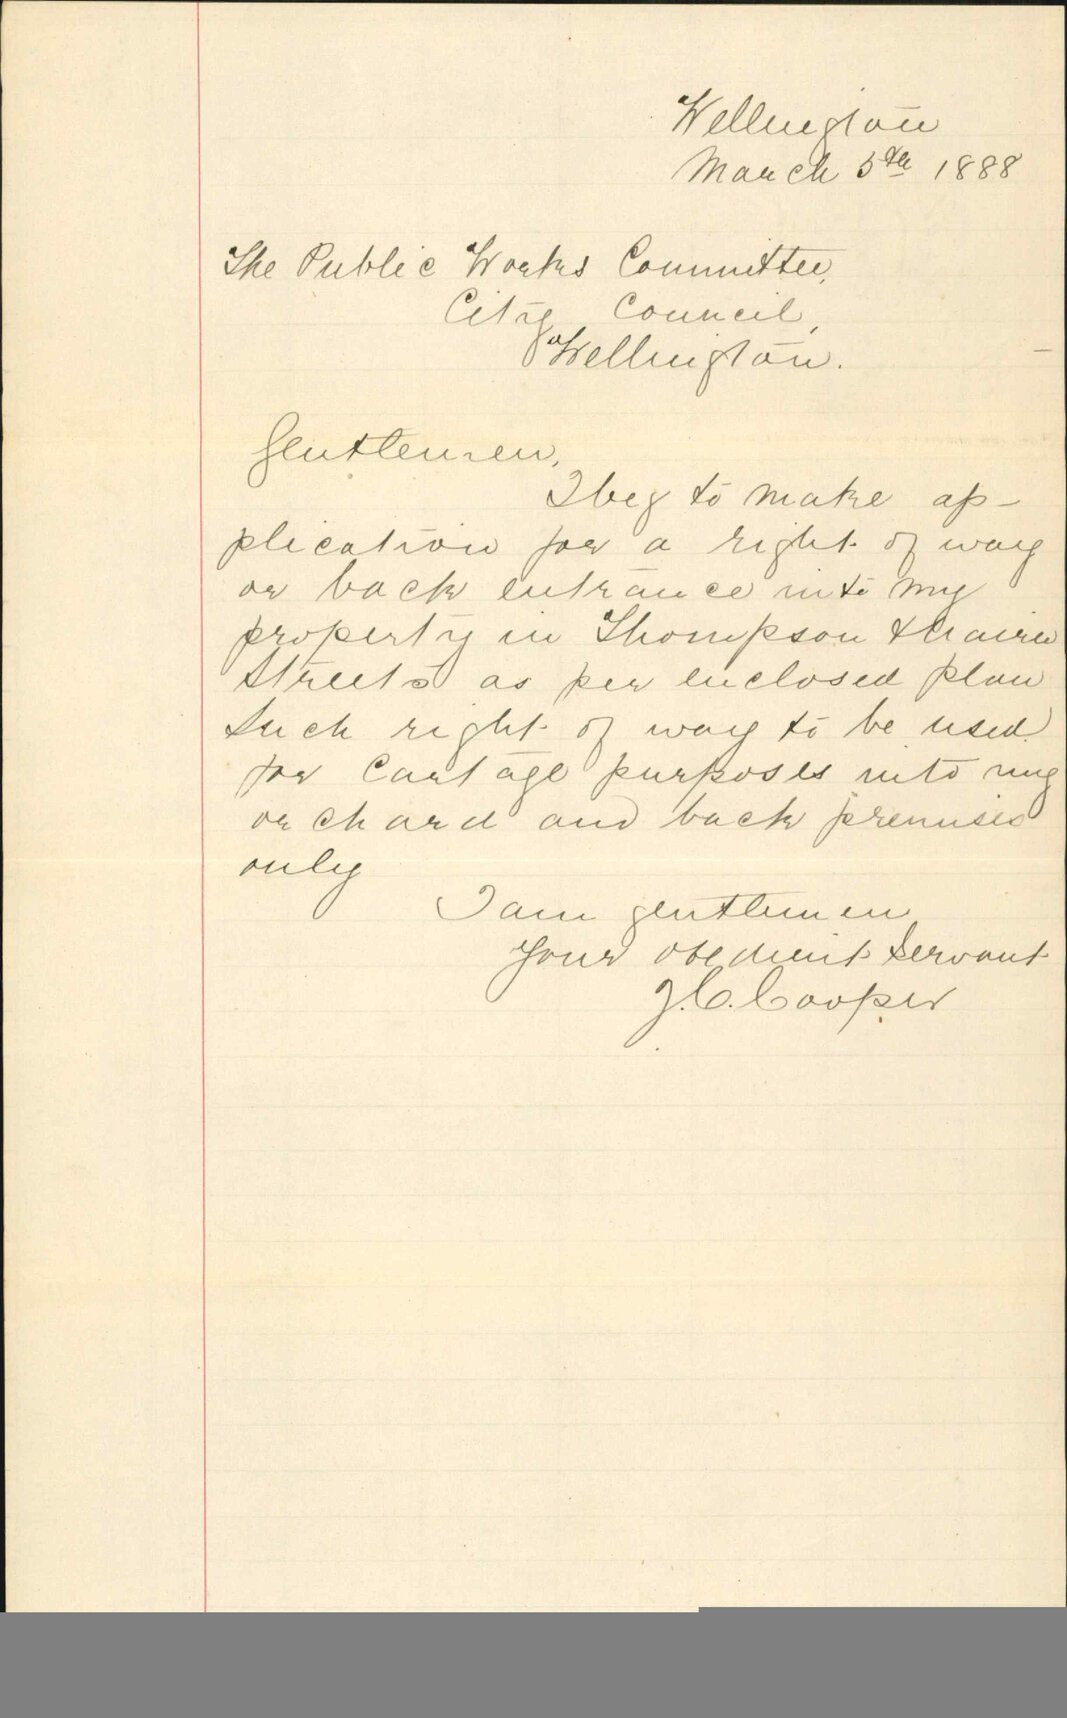 Wellington
March 5th 1888
The Public Works Committee,
City Council,
Wellington.
Gentlemen,
I beg to make ap-
plication for a right of way
or back entrance into my
property in Thompson & Nairn
Streets as per enclosed plan
Such right of way to be used
for Cartage purposes into my
orchard and back premises
only
I am gentlemen
Your obedient Servant
J.C. Cooper